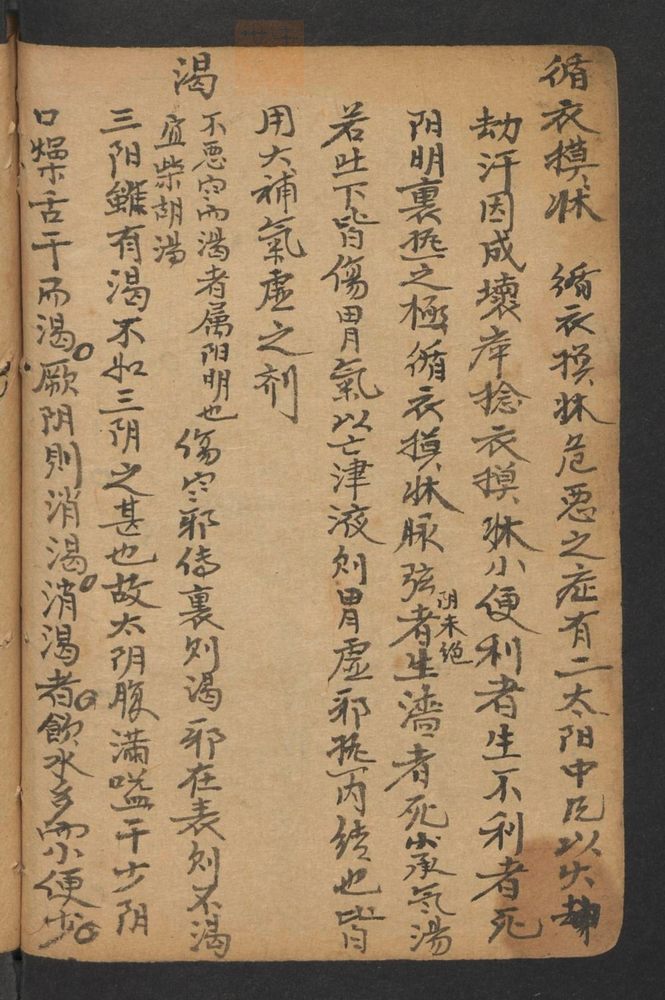 循衣摸牀 循衣摸牀危惡之症有二太阳中風以火劫
劫汗因成壞病捻衣摸牀小便利者生不利者死
阳明裏热之極循衣摸牀脉弦者生濇者死小承氣湯
阴未绝
若吐下皆傷胃氣以亡津液則胃虛邪热内结也皆
用大補氣虛之剂
渴 不惡寒而渴者属阳明也
宜柴胡湯
傷寒邪傳裏则渴邪在表则不渴
三阳雖有渴不如三阴之甚也故太阴腹满嗌干少阴
口燥舌干而渴。厥阴則消渴。消渴者。飲水多而小便少。